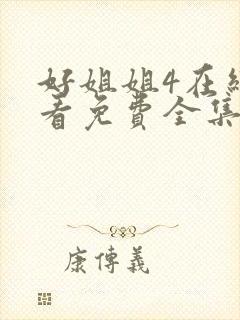 好姐姐4在
看免费全集
康傳義